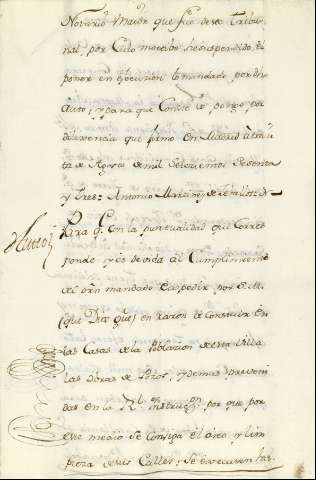 Notario Maior que fue de este Tribu-
nal, por Cuio motibo he suspendido el
poner en ejecucion lo mandado por dho
Auto; y para que Conste lo pongo por
dilixencia que firmo en Madrid a trein
ta de Agosto de mil Setecientos Sesenta
y tres: Antonio Martinez de
Auto.
Para q.e con la puntualidad que Corres
ponde, y es devida al Cumplimiento
del orn mandado expedir por S. M.
(que Dios gue) en razon de Construir en
las Casas de la Poblazion de esta Villa
las obras de Pozos, y demas preveni
das en la R.l Instrucz.on por que por
este medio se consiga el aseo y lim
pieza de sus Calles; Se executen las